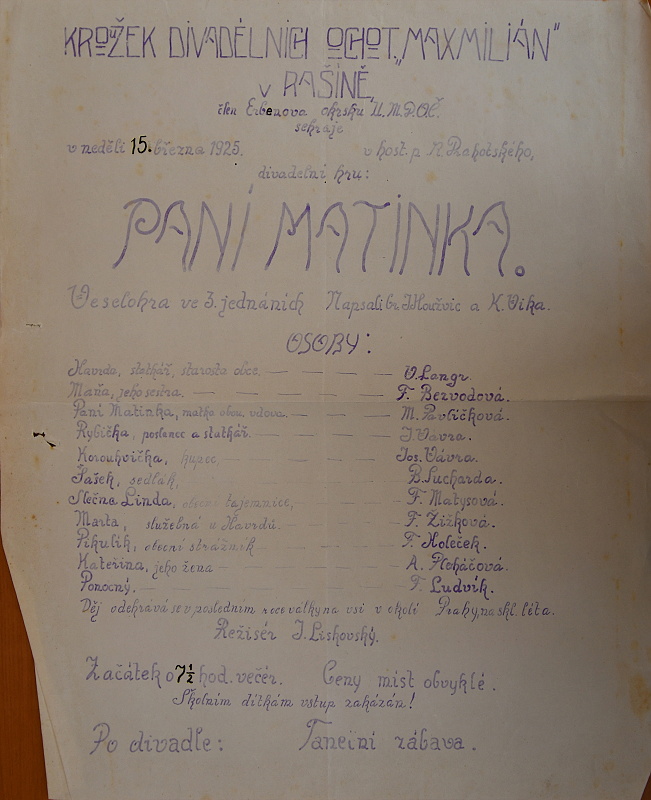 KROUŽEK DIVADELNÍCH OCHOT. „MAXMILIÁN"
v RAŠÍNĚ,
člen Erbenova okrsku Ú.M.D.O.Č.
sehraje
v neděli 15. března 1925. v host. p. R. Prahotského,
divadelní hru:
PANÍ MATINKA.
Veselohra ve 3. jednáních Napsali a K. Vika.
OSOBY:
Havrda, statkář, starosta obce. V. Langr
Maňa, jeho sestra. F. Bezvodová.
Paní Matinka, matka obou, vdova. M. Pavlíčková.
Rybička, poslanec a statkář. J. Vávra.
Korouhvička, kupec Jos. Vávra.
Šašek, sedlák, B. Sucharda.
Slečna Linda, obecní tajemnice, F. Matysová.
Marta, služebná u Havrdů. F. Žižková.
Pikulík, obecní strážník F. Holeček.
Kateřina, jeho žena A. Plcháčová.
Ponocný. F. Ludvík.
Děj odehrává se v posledním roce války na vsi v okolí Prahy, na skl. léta.
Režisér J. Liskovský.
Začátek o 7½ hod. večer. Ceny míst obvyklé.
Školním dítkám vstup zakázán!
Po divadle: Taneční zábava.